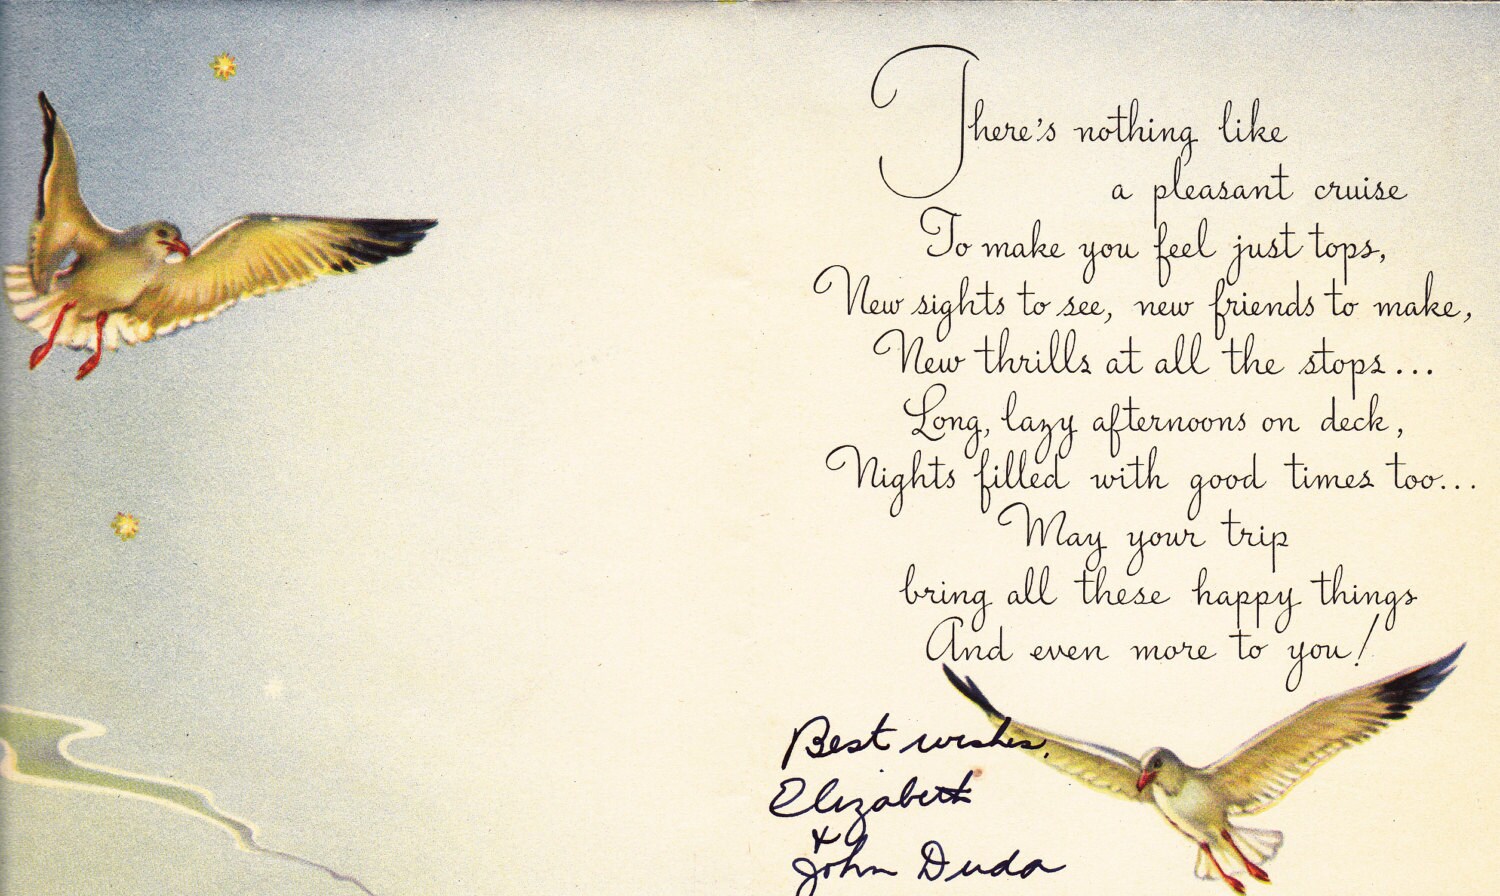 There's nothing like
a pleasant cruise
To make you feel just tops,
New sights to see, new friends to make,
New thrills at all the stops...
Long, lazy afternoons on deck,
Nights filled with good times too...
May your trip
bring all these happy things
And even more to you!
Best wishes,
Elizabeth
&
John Duda